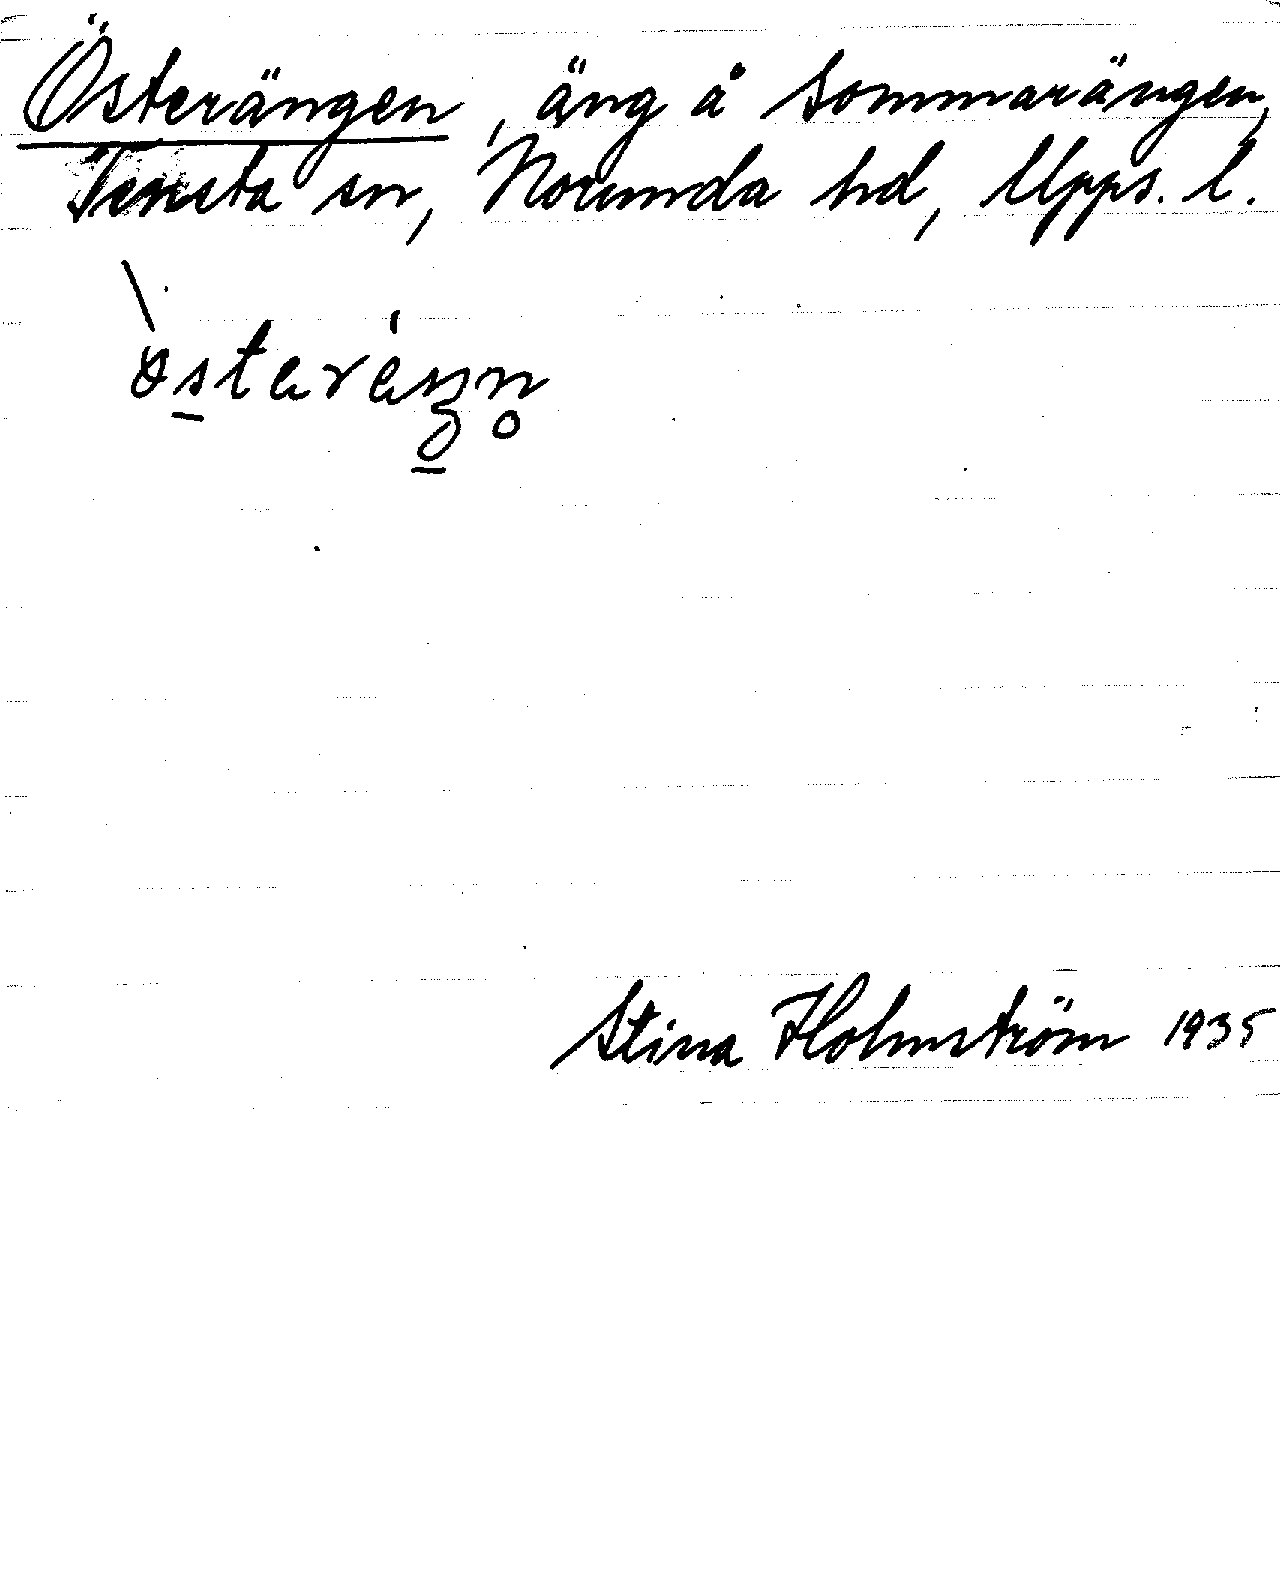 Österängen, äng å Sommarängen,
Tensta sn, Norunda hd, Upps. l.
Stina Holmström 1935